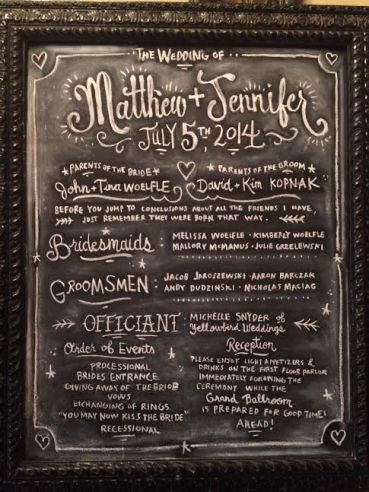 THE WEDDING OF
Matthew + Jennifer
JULY 5TH, 2014
PARENTS OF THE BRIDE
PARENTS OF THE GROOM
John + Tina WOELFLE
David + Kim KOPNAK
BEFORE YOU JUMP TO CONCLUSIONS ABOUT ALL THE FRIENDS I HAVE,
JUST REMEMBER THEY WERE BORN THAT WAY.
Bridesmaids
MELISSA WOELFLE · KIMBERLY WOELFLE
MALLORY MCMANUS · JULIE GRZELEWSKI
GROOMSMEN
JACOB JAROSZEWSKI · AARON BARCZAK
ANDY DUDZINSKI · NICHOLAS MACIAG
OFFICIANT
MICHELLE SNYDER of
Yellowbird Weddings
Order of Events
PROCESSIONAL
BRIDES ENTRANCE
GIVING AWAY OF THE BRIDE
VOWS
EXCHANGING OF RINGS
"YOU MAY NOW KISS THE BRIDE"
RECESSIONAL
Reception
PLEASE ENJOY LIGHT APPETIZERS &
DRINKS ON THE FIRST FLOOR PARLOR
IMMEDIATELY FOLLOWING THE
CEREMONY WHILE THE
Grand Ballroom
IS PREPARED FOR GOOD TIMES
AHEAD!